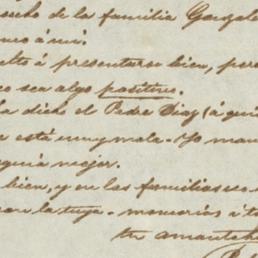 mucho de la familia Gonzale
mos á mi.
elto á presentarse bien, per
co sea algo positivo.
ha dicho el Padre Diaz (á qui
a está muy mala. Yo man
seguia mejor.
bien, y en las familias es
con la tuya. memorias á to
tu amante h